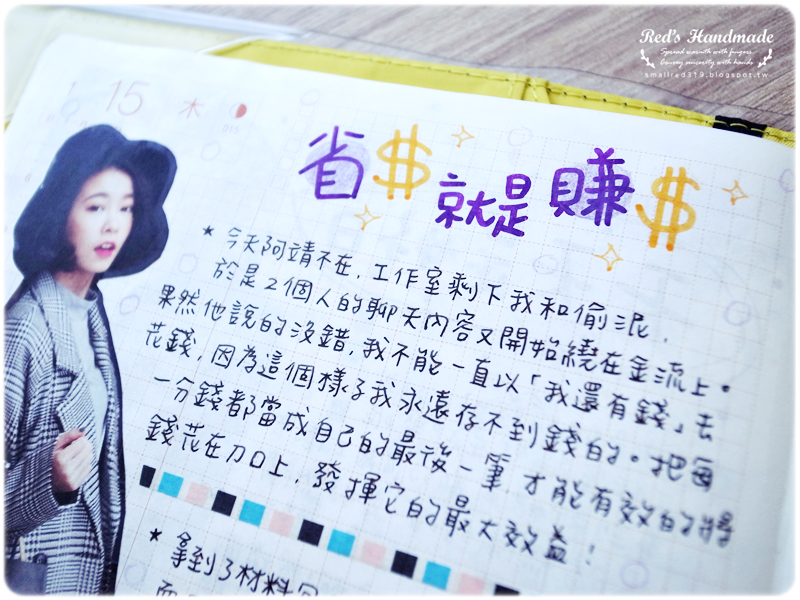 Red's Handmade
Spread warmth with fingers
Convey sincerity with hands
smallred319.blogspot.tw
15 木
省$就是賺$
★ 今天阿靖不在,工作室剩下我和偷泥,
於是2個人的聊天內容又開始繞在金流上。
果然他說的沒錯,我不能一直以「我還有錢」去
花錢,因為這個樣子我永遠存不到錢的。把每
一分錢都當成自己的最後一筆,才能有效的將
錢花在刀口上,發揮它的最大效益!
★ 拿到了材料